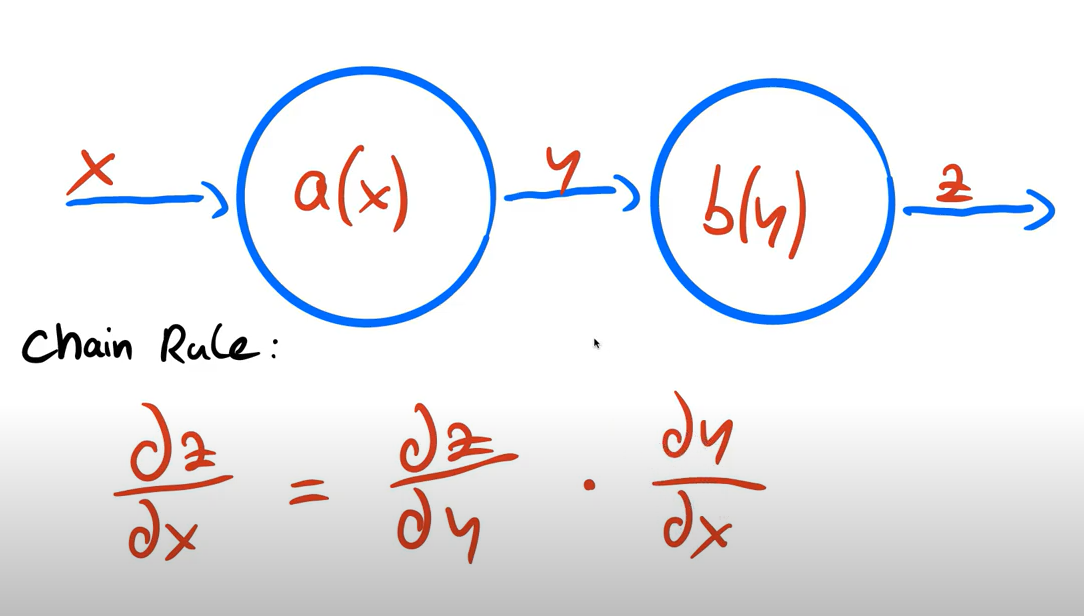 x a(x) y b(y) z
Chain Rule:
∂z/∂x = ∂z/∂y · ∂y/∂x